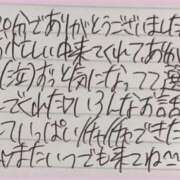 0分でありがとうございました
忙しい中来てくれてありが
(泣)ずっと気になってて選
でくれたていろんなお話
ていっぱいイチャイチャできた
またいつでも来てね〜